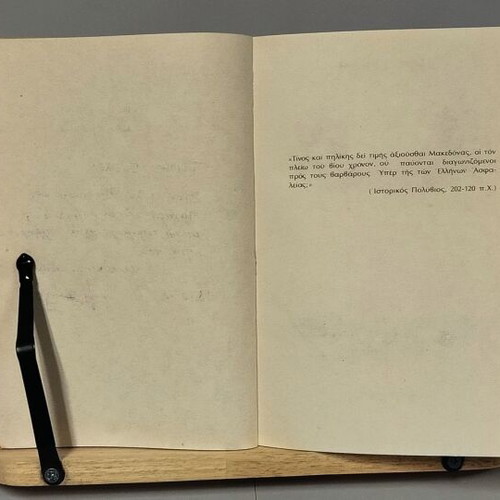 «Τίνος καί πηλίκης δεῖ τιμῆς ἀξιοῦσθαι Μακεδόνας, οἱ τόν
πλείω τοῦ βίου χρόνον, οὐ παύονται διαγωνιζόμενοι
πρός τους βαρβάρους Ὑπέρ τῆς τῶν Ἑλλήνων Ἀσφα-
λείας;»
( Ἱστορικός Πολύβιος, 202-120 π.Χ.)